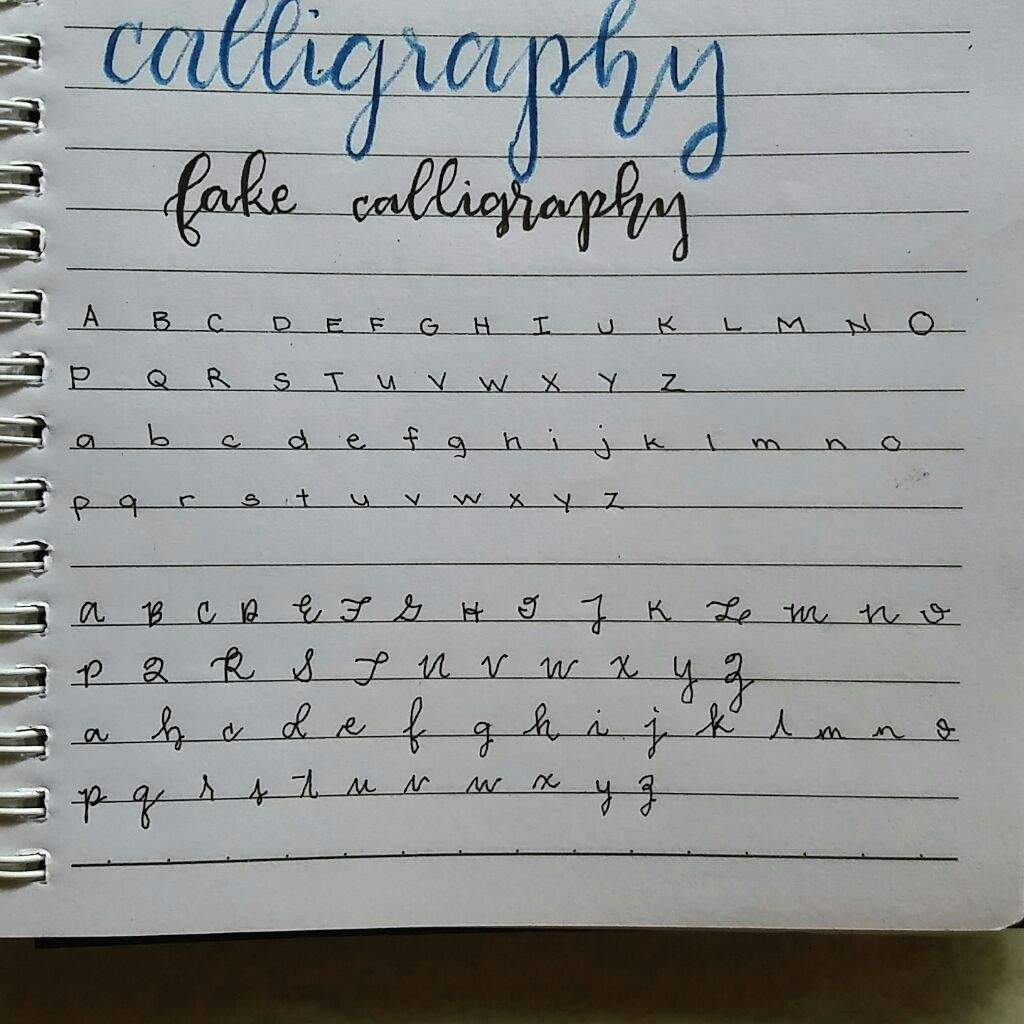 calligraphy
fake calligraphy
A B C D E F G H I U K L M N O
P Q R S T U V W X Y Z
a b c d e f g h i j k l m n o
p q r s t u v w x y z
a B C D E F G H I J K L m n o
p Q R S T U V W X Y Z
a b c d e f g h i j k l m n o
p q r s t u v w x y z